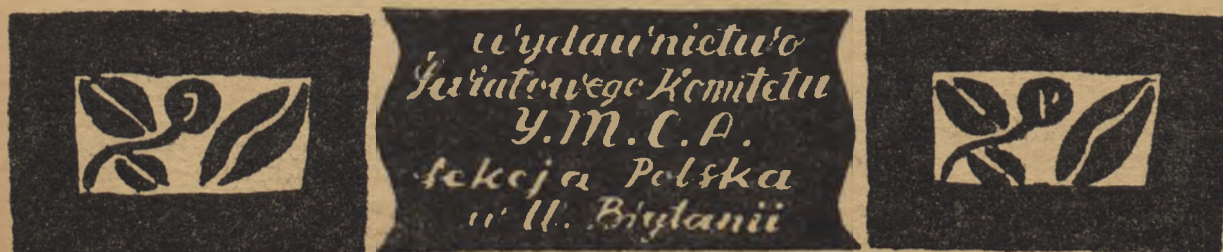 wydawnictwo
Światowego Komitetu
Y.M.C.A.
sekcja Polska
w W. Brytanii